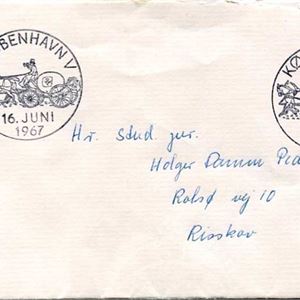 ØBENHAVN V
16. JUNI
1967
KØ
Hr. stud. jur.
Holger Damm
Rolsø vej 10
Risskov